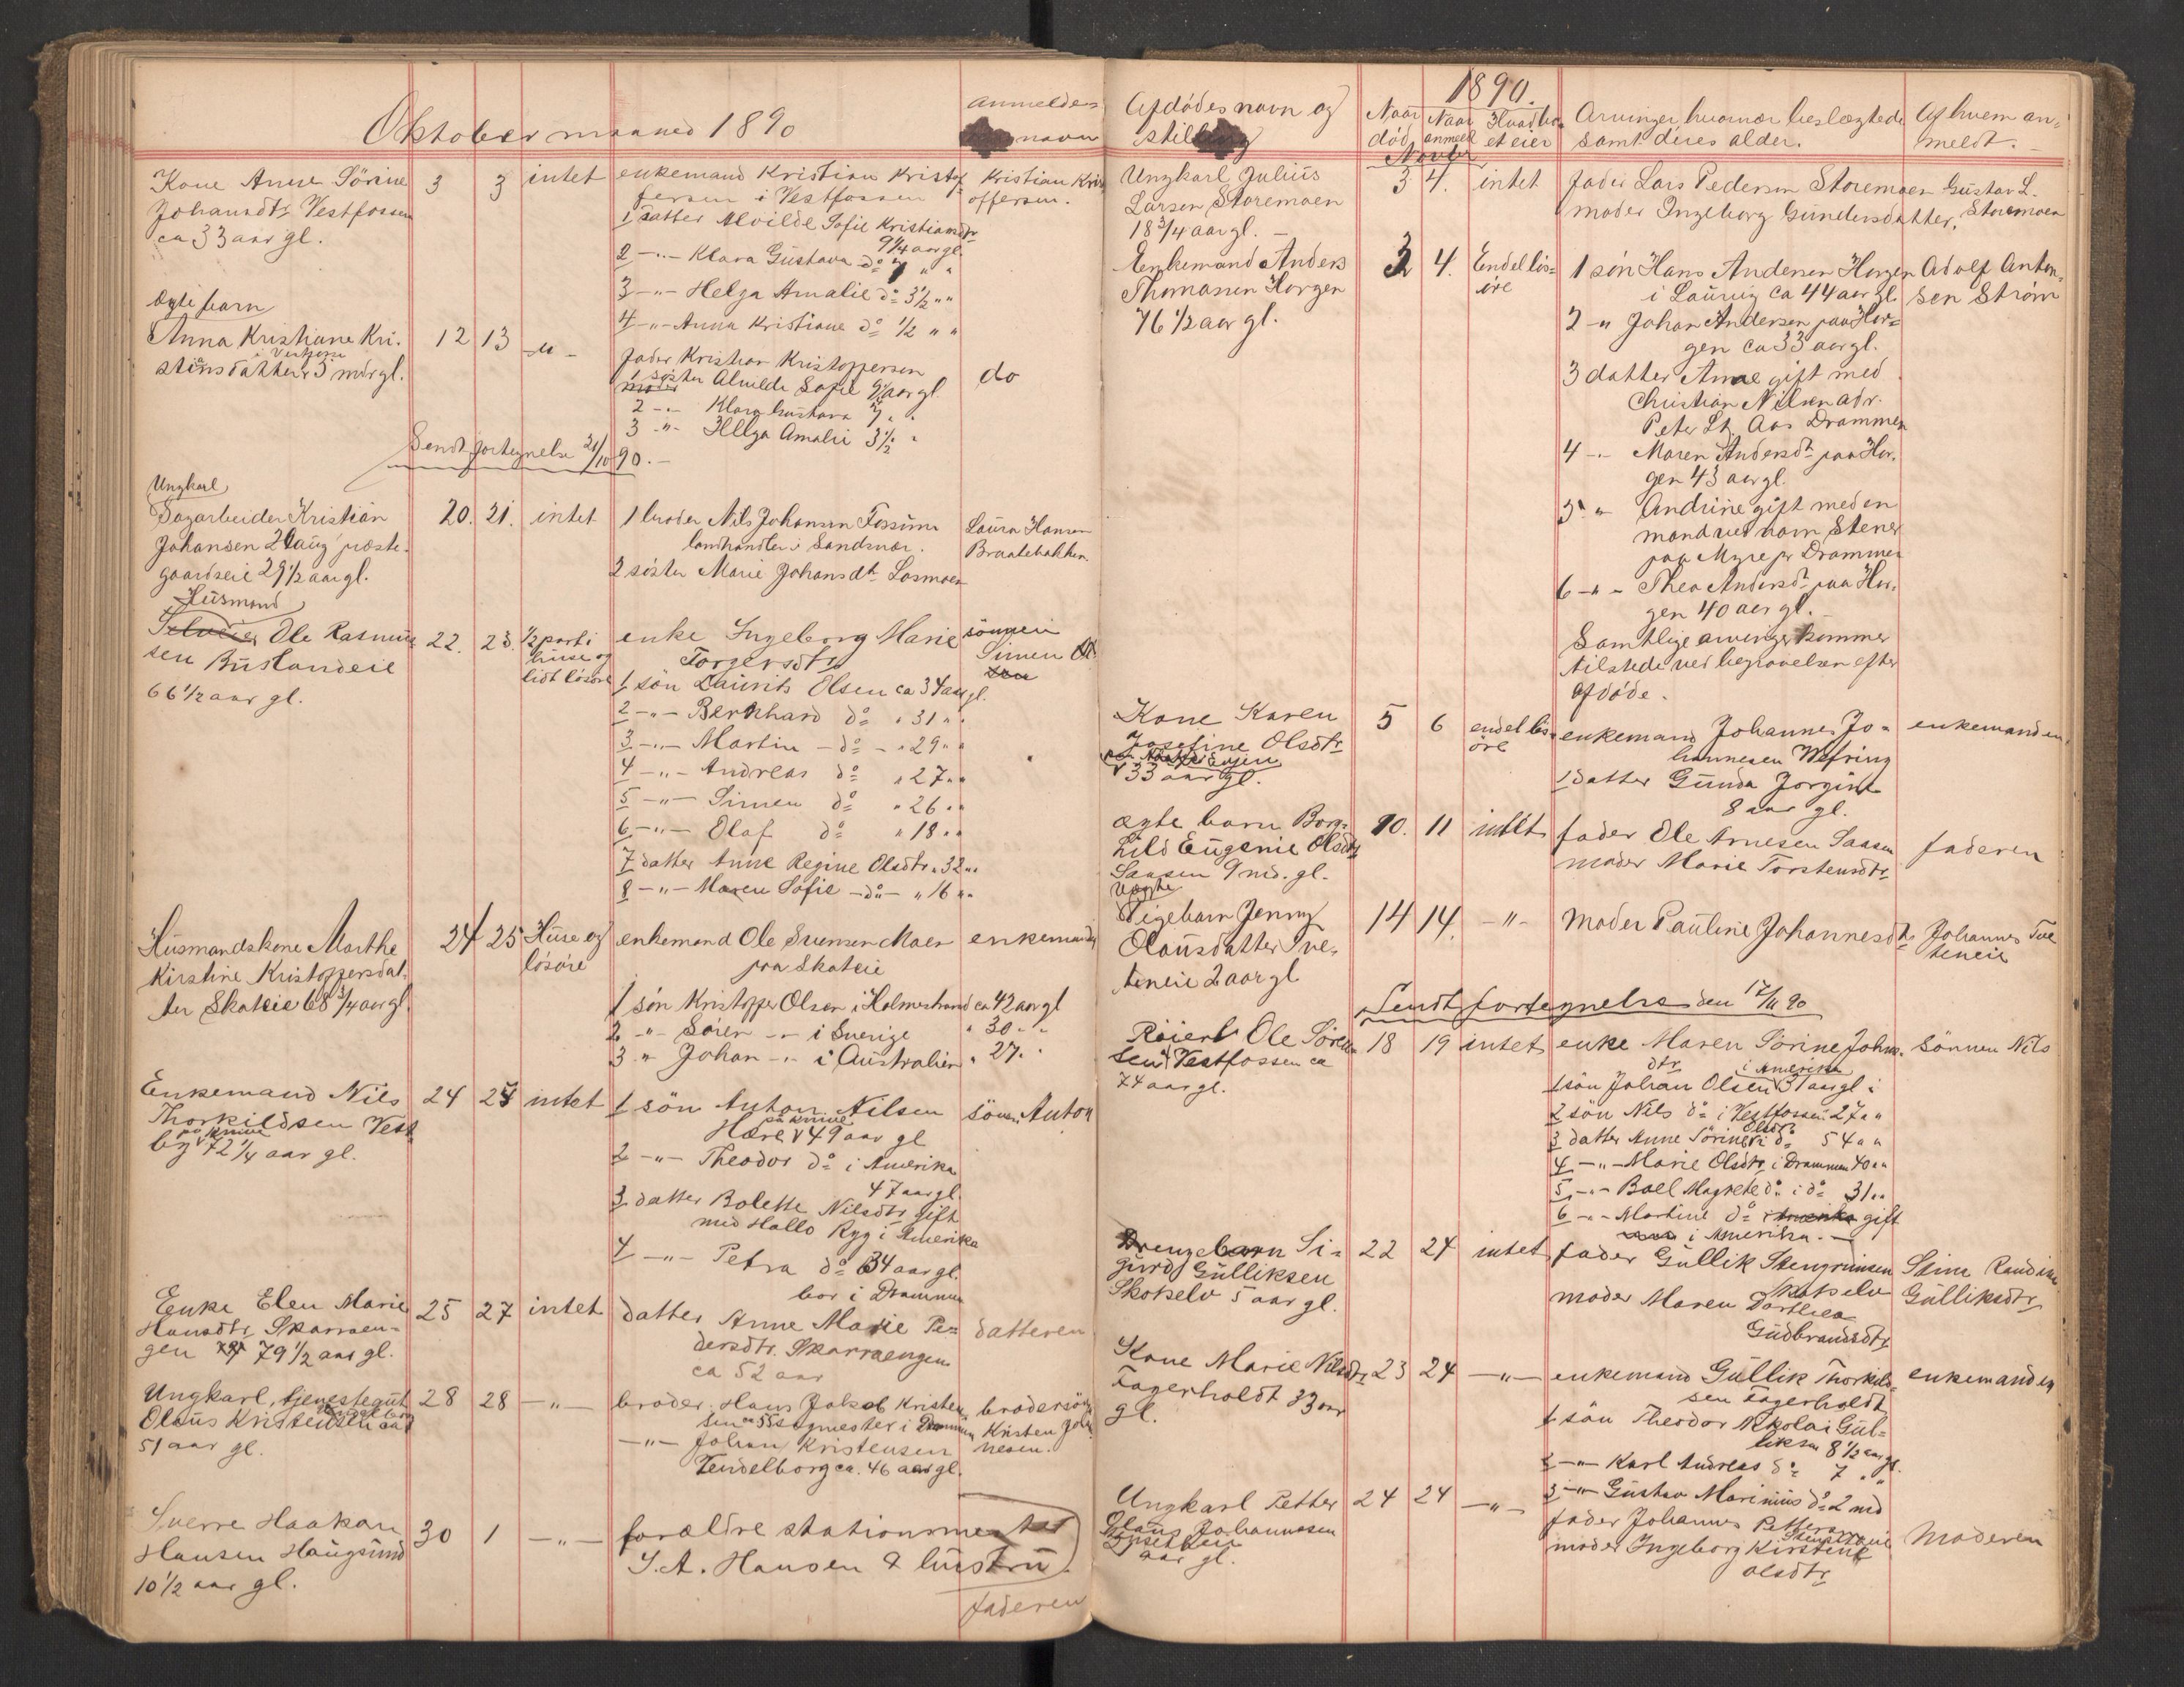 Oktober maaned 1890
anmelders
navn
Kone Anne Sörine
Johansdtr Vestfossen
ca 33 aar gl.
3
3
intet
enkemand Kristian Kristof
fersen i Vestfossen
1 datter Alvilde Sofie Kristiansdtr
9 1/4 aar gl.
2 -"- Klara Gustava do 7 " "
3 -"- Helga Amalie do 3 1/2 " "
4 -"- Anna Kristiane do 1/2 " "
Kristian Krist
offersen.
Ægte barn
Anna Kristiane Kri-
i Vestfossen
stiansdatter 5 mdr gl.
12
13
-"-
fader Kristian Kristoffersen
1 söster Alvilde Sofie 9 1/4 aar gl.
2 -"- Klara Gustava 7 " "
3 -"- Helga Amalie 3 1/2 "
do
Sendt fortegnelse 21/10 90.-
Ungkarl
Sagarbeider Kristian
Johansen præste-
gaardseie 29 1/2 aar gl.
20.
21.
intet
1 broder Nils Johansen Fossum
landhandler i Sandsvær.
2 söster Marie Johansdtr Losmoen
Laura Hansen
Braatebakken
Husmand
Selveier Ole Rasmus
sen Buslandeie
66 1/2 aar gl.
22.
23.
1/2 part i
huse og
lidt lösöre
enke Ingeborg Marie
Torgersdtr
1 sön Laurits Olsen ca 34 aar gl.
2 -"- Bernhard do " 31 " "
3 -"- Martin -do- " 29 " "
4 -"- Andreas do " 27 " "
5 -"- Simen do " 26 " "
6 -"- Olaf do " 18 " "
7 datter Anne Regine Olsdtr " 32 " "
8 -"- Maren Sofie -do- " 16 " "
sönnen
Simen
Husmandskone Marthe
Kirstine Kristoffersdat-
ter Skateie 68 3/4 aar gl.
24
25
Huse og
lösöre
enkemand Ole Svensen Moen
paa Skateie
1 sön Kristoffer Olsen i Holmestrand ca 42 aar gl
2 -"- Sören -"- i Sverige " 30 " "
3 " Johan -"- i Australien " 27 " "
enkemanden
Enkemand Nils
Thorkildsen Vest
by 72 1/4 aar gl.
24
25
intet
1 sön Anton Nilsen
49 aar gl
2 -"- Theodor do i Amerika
47 aar gl.
3 datter Bolette Nilsdtr gift
med Hallo Ryg i Amerika
4 -"- Petra do 34 aar gl.
bor i Drammen
sön Anton
Enke Elen Marie
Hansdtr Skarraen-
gen 79 1/2 aar gl.
25
27
intet
datter Anne Marie Pe-
dersdtr. Skarraengen
ca 52 aar
datteren
Ungkarl, tjenestegut
Olaus Kristensen
51 aar gl.
28
28
-"-
broder Hans Jakob Kristen
sen ca 55 sagmester i Drammen
-"- Johan Kristensen
Tendelborg ca. 46 aar gl.
brodersön
Kristen Joha
nesen.
Sverre Haakon
Hansen Haugsund
10 1/2 aar gl.
30
1
-"-
forældre stationsmester
S. A. Hansen & hustru.
faderen
1890.
Afdödes navn og
stilling
Naar
död
Naar
anmeldt
Hvad bo
et eier
Arvinger hvornær beslegtede
samt deres alder.
Af hvem an-
meldt.-
Novbr
Ungkarl Julius
Larsen Storemoen
18 3/4 aar gl. -
3
4.
intet
fader Lars Pedersen Storemoen
moder Ingeborg Gundersdatter.
Gustav L.
Storemoen
Enkemand Anders
Thomassen Horgen
76 1/2 aar gl.
3
4.
Endel lös-
öre
1 sön Hans Andersen Horgen
i Laurvig ca 44 aar gl.
2 -" Johan Andersen paa Hor-
gen ca 33 aar gl.
3 datter Anne gift med
Christian Nilsen adr.
Peter Aas Drammen
4 -"- Maren Andersdtr paa Hor-
gen 43 aar gl.
5 " Andrine gift med en
mand ved navn Stener
paa Myre pr Drammen
6 -"- Thea Andersdtr paa Hor-
gen 40 aar gl.
Samtlige arvinger kommer
tilstede ved begravelsen efter
afdöde.
Adolf Anton-
sen Ström
Kone Karen
Josefine Olsdtr
33 aar gl.
5
6
endel lös-
öre
enkemand Johannes Jo-
hannesen Wefring
1 datter Gunda Jorgine
8 aar gl.
enkemanden
ægte barn Borg-
hild Eugenie Olsdtr
Saasen 9 md. gl.
10.
11
intet
fader Ole Arnesen Saasen
moder Marie Torstensdtr
faderen
uægte
Pigebarn Jenny
Olausdatter Tve-
teneie 2 aar gl
14
14.
-"-
Moder Pauline Johannesdtr
Johannes Tve
teneie
Sendt fortegnelse den 17/11 90
Reiert Ole Sören
sen Vestfossen ca
74 aar gl.
18
19
intet
enke Maren Sörine Johns-
dtr
i Amerika
1 sön Johan Olsen 31 aar gl
2 sön Nils do i Vestfossen 27 " "
3 datter Anne Sörine Olsdtr i do 54 " "
4 -"- Marie Olsdtr i Drammen 40 " "
5 -"- Boel Magrete do i do 31 " "
6 -"- Martine do gift
i Amerika.-
sönnen Nils
Drengebarn Si-
gurd Gulliksen
Skotselv 5 aar gl.
22
24
intet
fader Gullik Stengrimsen
Skotselv
moder Maren Dorthea
Gudbrandsdtr
Randine
Gulliksdtr
Kone Marie Nilsdtr
Fagerholdt 33 aar
gl.
23
24
-"-
enkemand Gullik Thorkild-
sen Fagerholdt
1 sön Theodor Nikolai Gul-
liksen 8 1/2 aar gl.
2 -"- Karl Andreas do 7 " "
3 -"- Gustav Marinius do 2 md
enkemanden
Ungkarl Petter
Olaus Johannesen
aar gl.
24
24
-"-
fader Johannes Pettersen
moder Ingeborg Kirstine
Olsdtr
Moderen